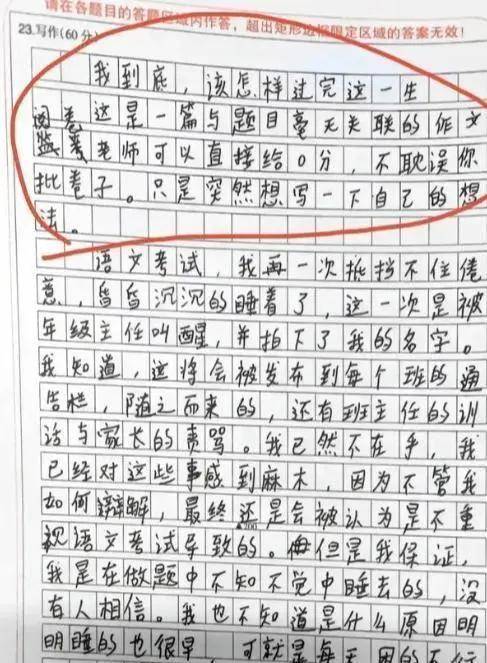 请在各题目的答题区域内作答，超出矩形边框限定区域的答案无效！
23.写作(60分)
我到底，该怎样过完这一生
这是一篇与题目毫无关联的作文
阅卷
监卷老师可以直接给0分，不耽误你
批卷子。只是突然想写一下自己的想
法。
语文考试，我再一次抵挡不住倦
意，昏昏沉沉的睡着了，这一次是被
年级主任叫醒，并拍下了我的名字。
我知道，这将会被发布到每个班的通
告栏，随之而来的，还有班主任的训
话与家长的责骂。我已然不在乎，我
已经对这些事感到麻木，因为不管我
如何辩解，最终还是会被认为是不重
视语文考试导致的。但是我保证，
我是在做题中不知不觉中睡去的，没
有人相信。我也不知道是什么原因明
明睡的也很早，可就是每天困的不行